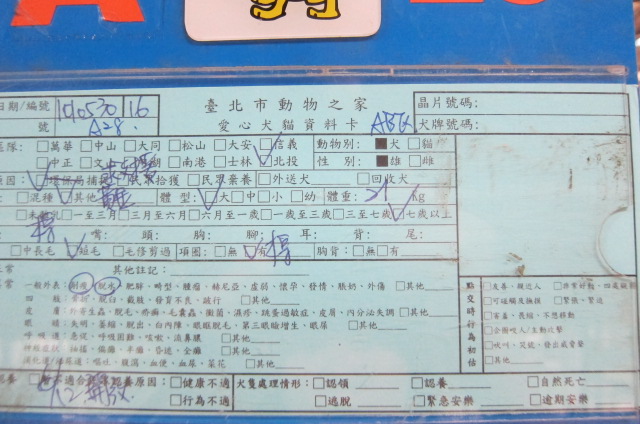 日期/編號 1010530 16 臺北市動物之家 晶片號碼:
號 A28 愛心犬貓資料卡 犬牌號碼:
區隊: □萬華 □中山 □大同 □松山 □大安 □信義 動物別: ■犬 □貓
□中正 □南港 □士林 □北投 性別: ■雄 □雌
原因: □環保局捕捉 □民眾拾獲 □民眾棄養 □外送犬 □回收犬
□混種 □其他 體型: □大 □中 □小 □幼 體重: 21 Kg
□一至三月 □三月至六月 □六月至一歲 □一歲至三歲 □三至七歲 □七歲以上
嘴: 頭: 胸: 腳: 耳: 背: 尾:
□中長毛 □短毛 □毛修剪過 項圈: □無 □有 胸背: □無 □有
正常 其他註記:
一般外表: 削瘦, 脫水, 肥胖, 畸型, 腫瘤, 赫尼亞, 皮屑, 懷孕, 發情, 脹奶, 外傷 □其他
四肢: 脫臼, 截肢, 發育不良, 跛行 □其他
皮膚: 外寄生蟲, 脫毛, 疥癬, 毛囊蟲, 黴菌, 濕疹, 跳蚤過敏症, 皮屑, 內分泌失調 □其他
眼睛: 失明, 萎縮, 脫出, 白內障, 眼瞼脫毛, 第三眼瞼增生, 眼屎 □其他
呼吸道: 急促, 呼吸困難, 咳嗽, 流鼻膿 □其他
神經症狀: 抽搐, 偏癱, 半癱, 昏迷, 全癱 □其他
嘔吐, 腹瀉, 血便, 血尿, 菜花 □其他
點交時行為初估
□友善、親近人
□可碰觸長撫摸 □緊張、緊迫
□害羞、畏縮、不想移動
□企圖咬人/主動攻擊
□吠叫、哭號、發出威脅聲
□其他
認養 □不適合認養原因: □健康不適 犬隻處理情形: □認領 □認養 □自然死亡
□行為不適 □逃脫 □緊急安樂 □逾期安樂